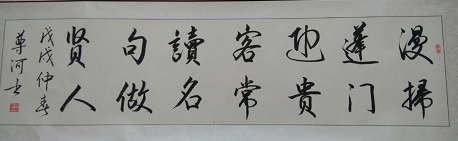 漫掃
蓬门
迎貴
客常
讀名
句做
贤人
戊戌仲春
尊河书